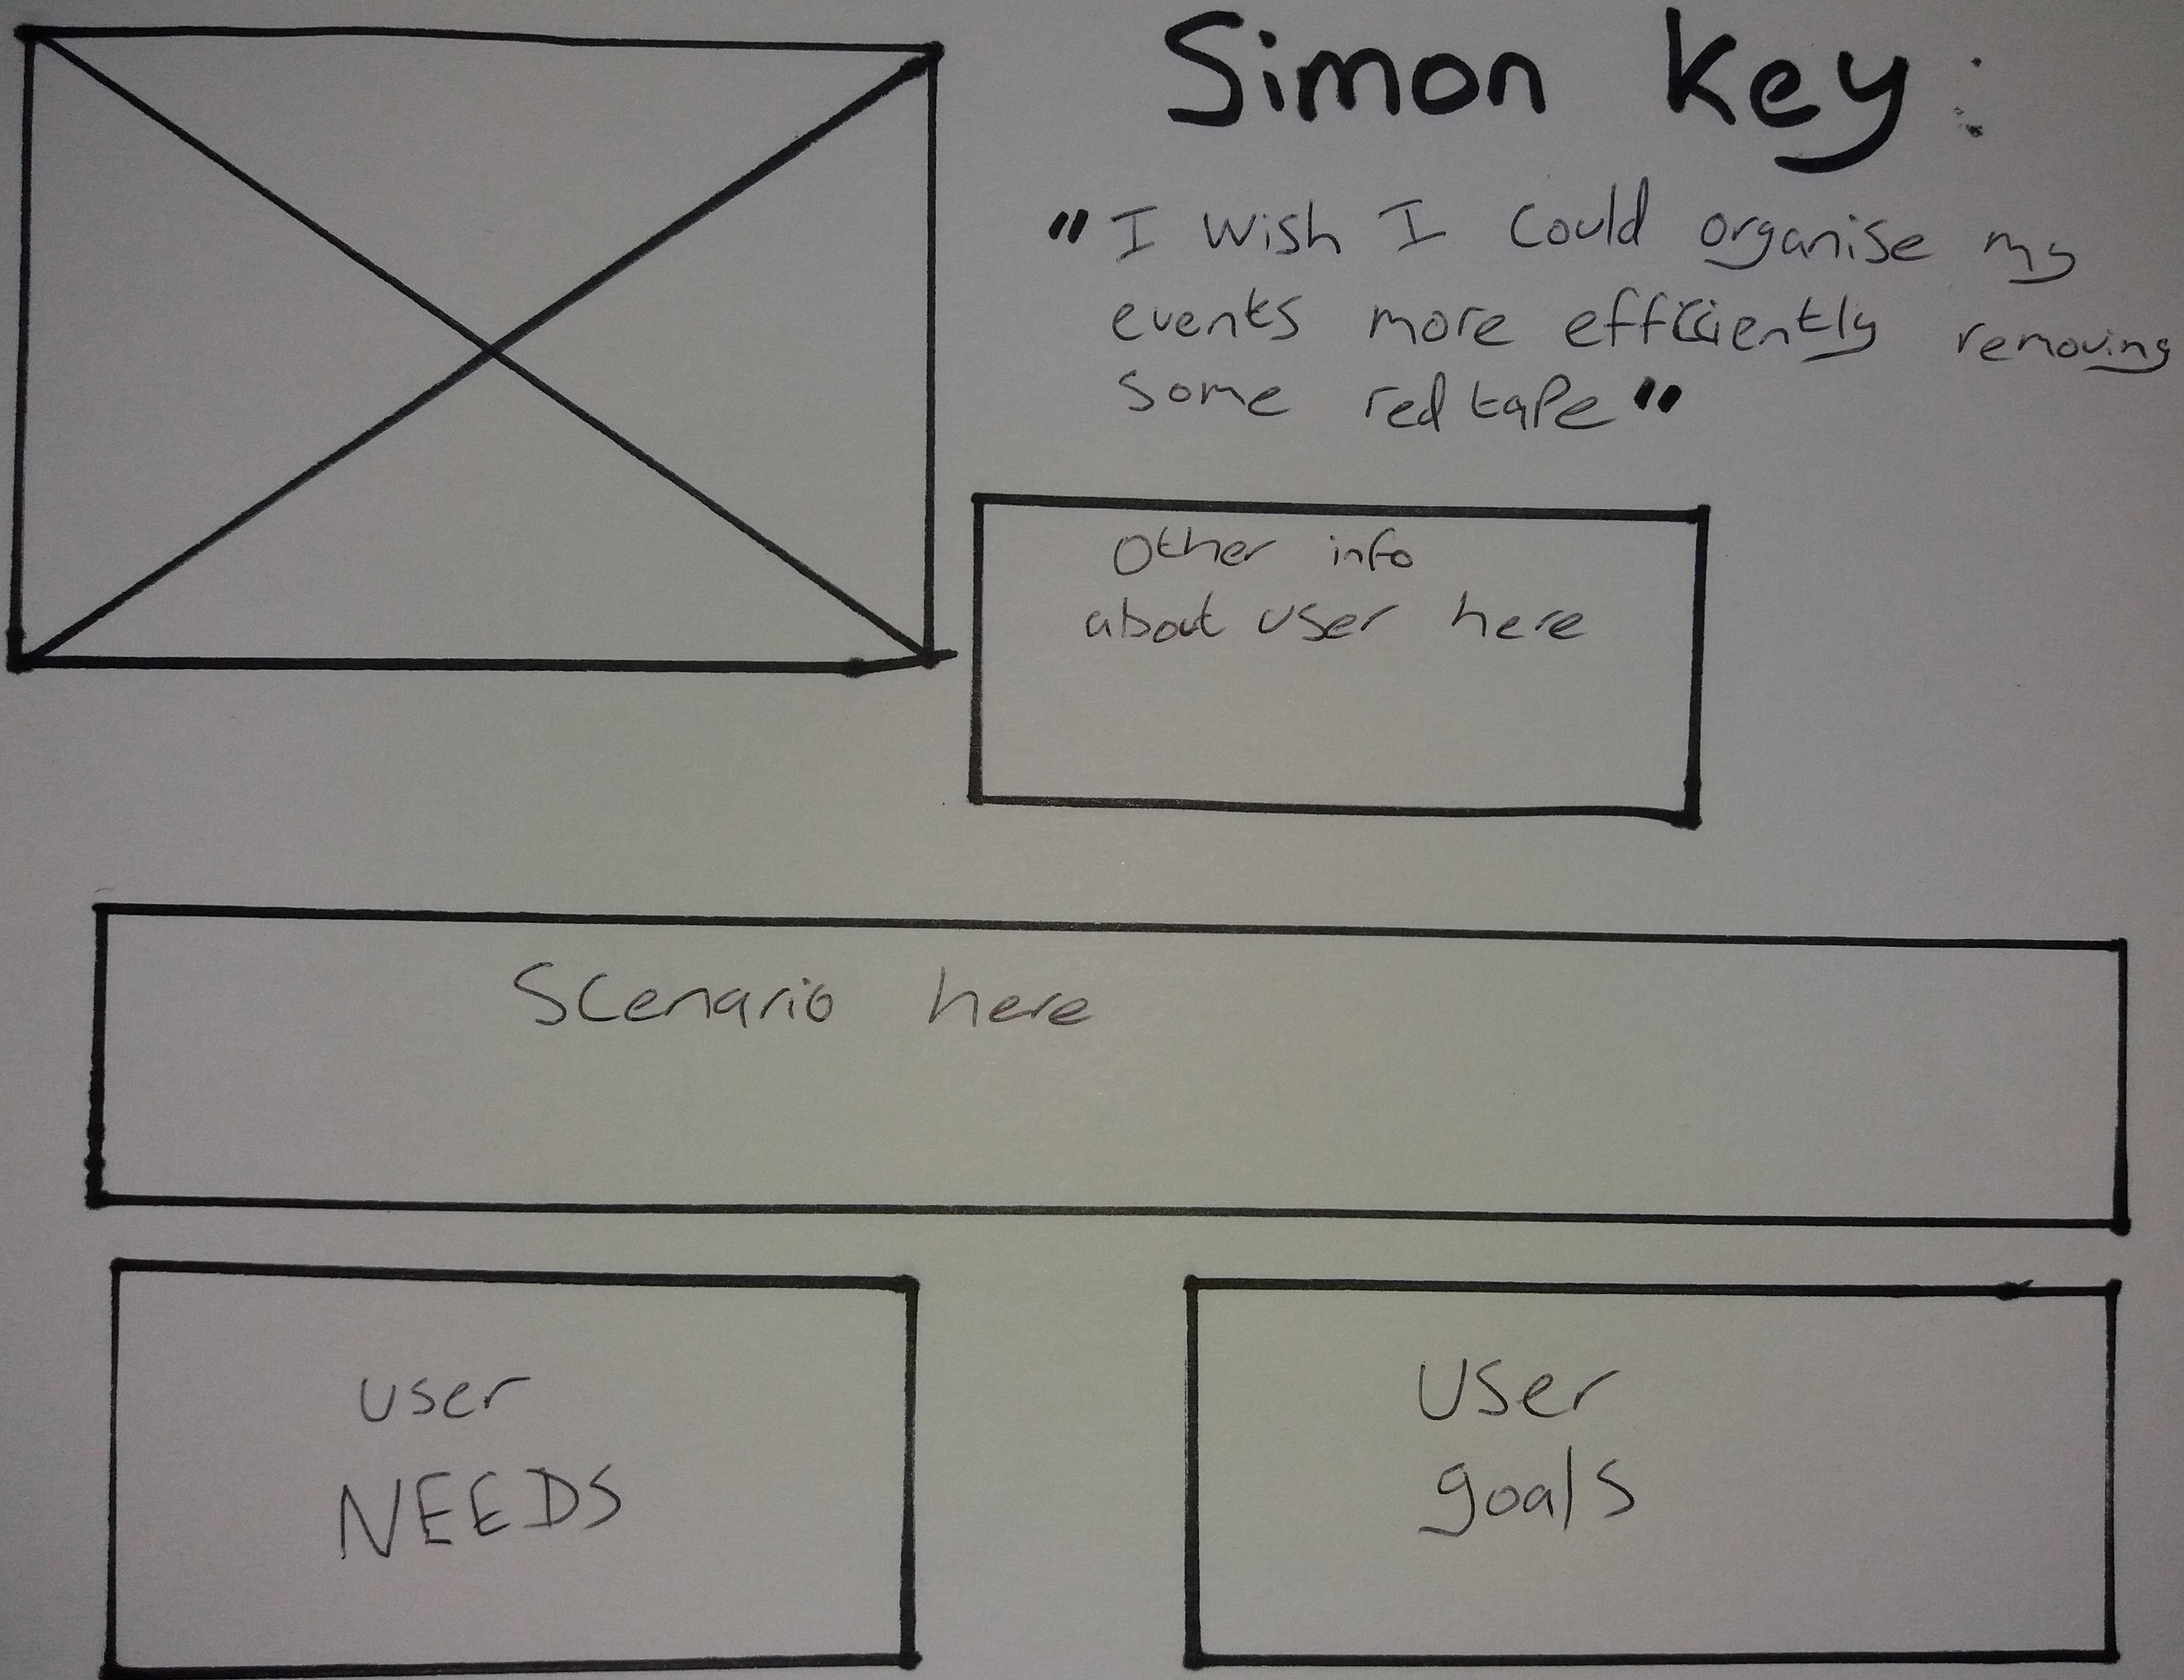 Simon Key:
"I wish I could organise my
events more efficiently removing
some red tape"
Other info
about user here
Scenario here
user
NEEDS
User
goals